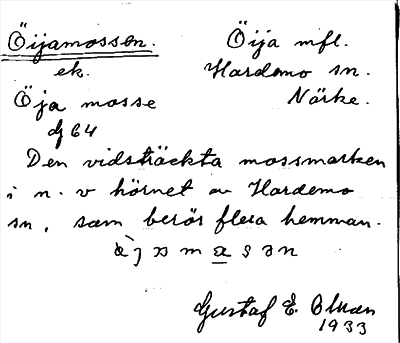 Öijamossen.
ek.
Öja mosse
dj 64
Öija mfl.
Hardemo sn.
Närke.
Den vidsträckta mossmarken
i n. v hörnet av Hardemo
sn, som berör flera hemman.
Gustaf E.
1933